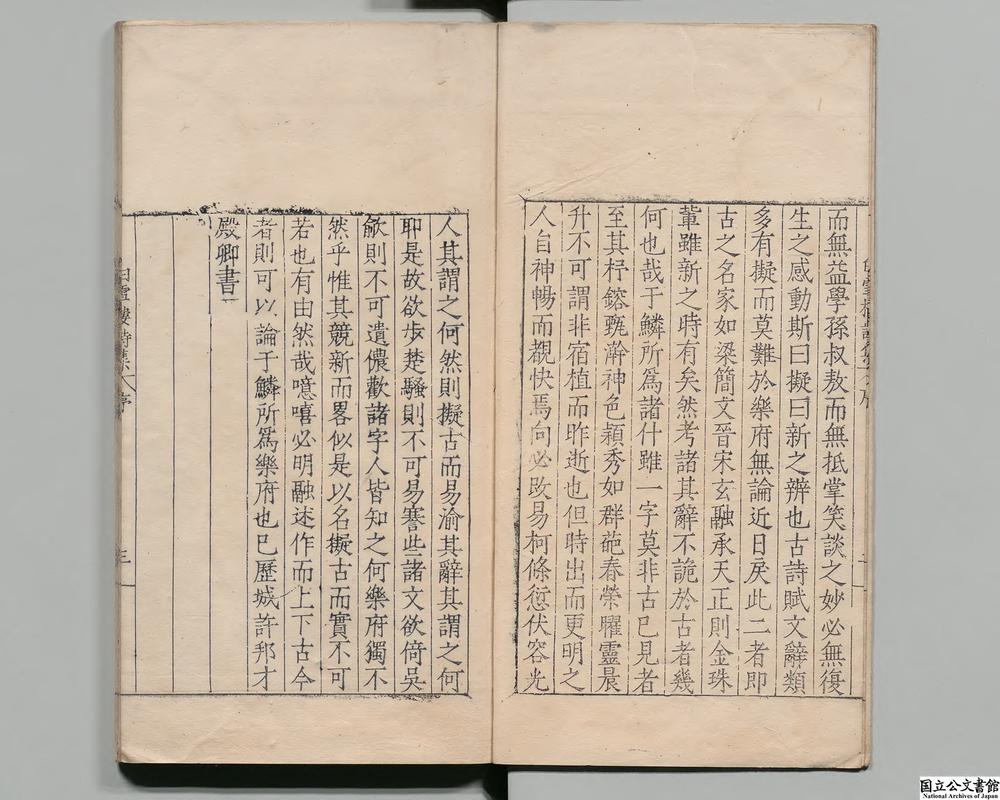 而無益學孫叔敖而無抵掌笑談之妙必無復
生之感動斯曰擬曰新之辨也古詩賦文辭類
多有擬而莫難於樂府無論近日戾此二者即
古之名家如梁簡文晉宋玄融承天正則金珠
軰雖新之時有矣然考諸其辭不詭於古者幾
何也哉于鱗所爲諸什雖一字莫非古已見者
至其杼鎔甄澣神色穎秀如群葩春榮曜靈晨
升不可謂非宿植而昨逝也但時出而更明之
人自神暢而覩快焉向必改易柯條愆伏容光
人其謂之何然則擬古而易渝其辭其謂之何
耶是故欲步楚騷則不可易謇些諸文欲倚吳
歈則不可遺儂歡諸字人皆知之何樂府獨不
然乎惟其競新而畧似是以名擬古而實不可
若也有由然哉噫嘻必明融述作而上下古今
者則可以論于鱗所爲樂府也已歷城許邦才
殿卿書
白雪樓詩集 序
三
国立公文書館
National Archives of Japan